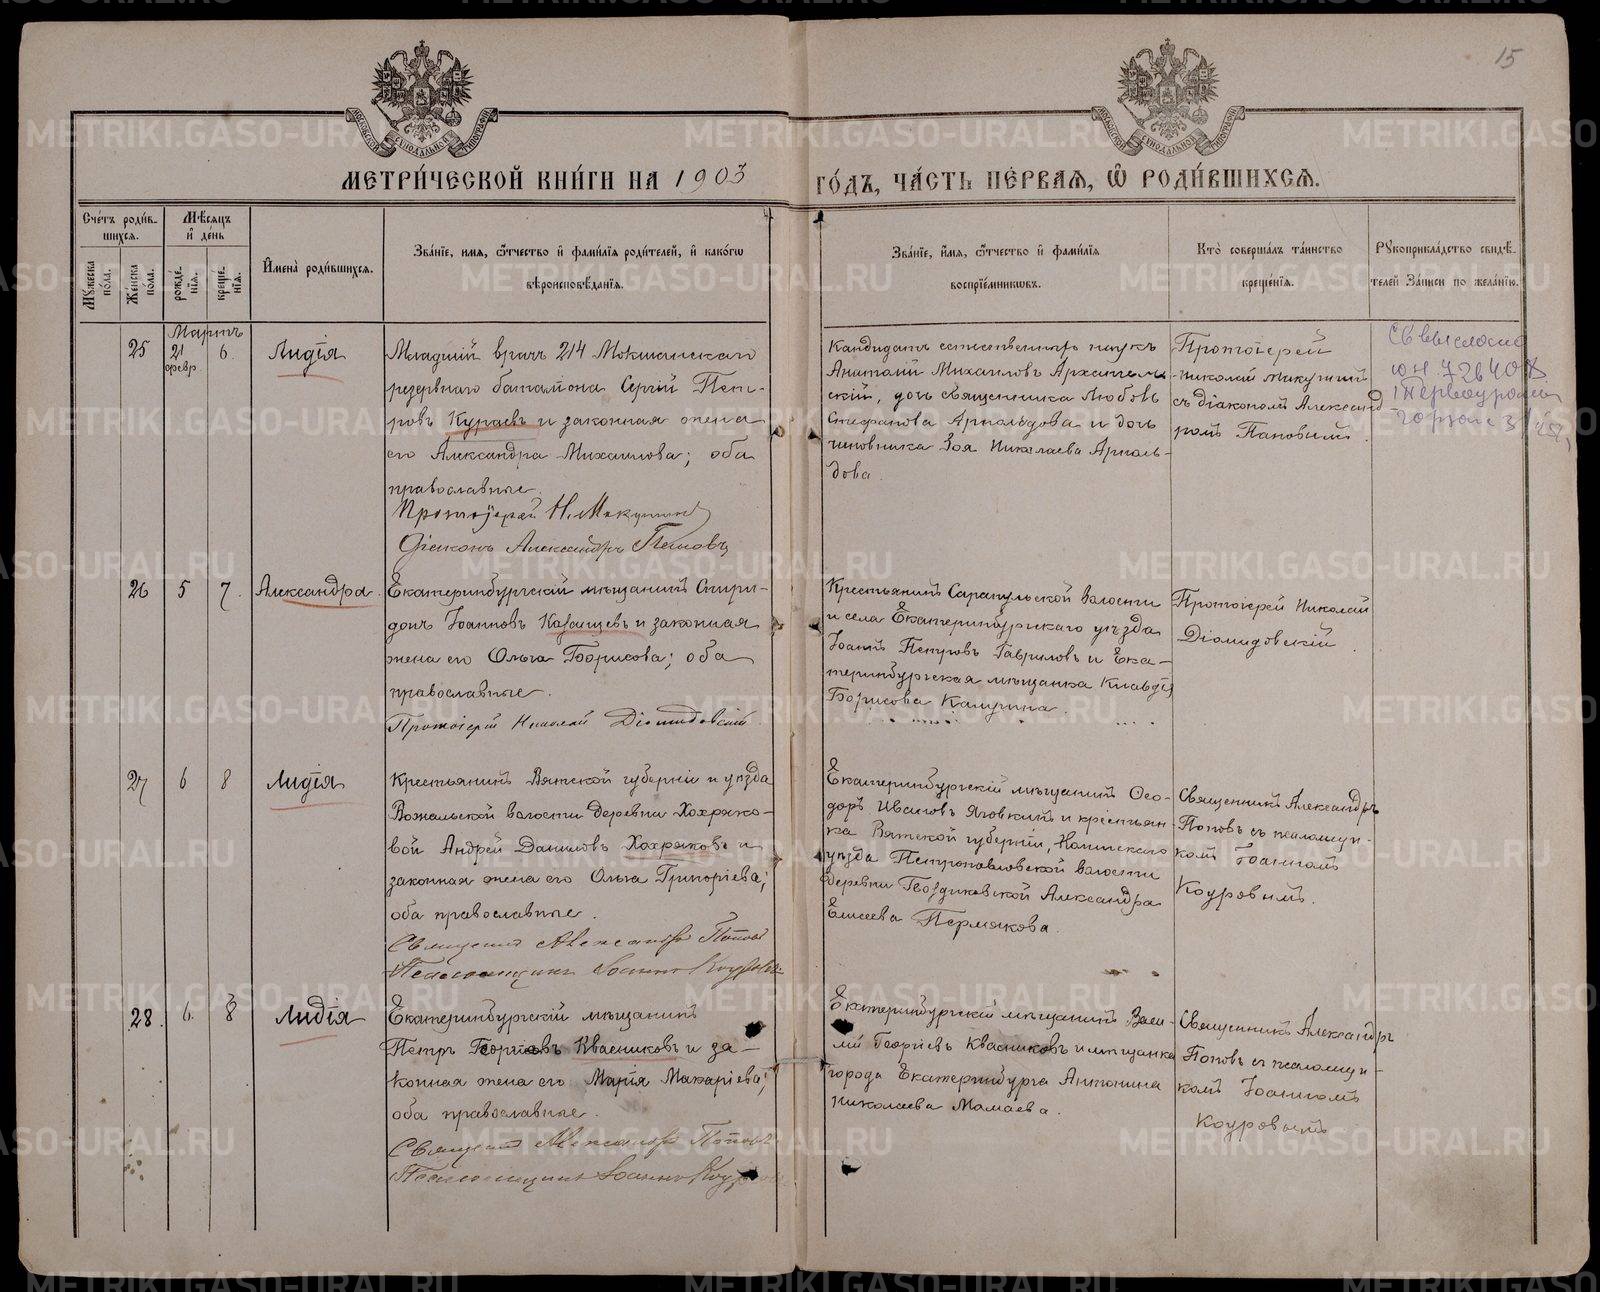 15
МЕТРИ́ЧЕСКОЙ КНИ́ГИ НА 1903 ГО́ДЪ, ЧА́СТЬ ПЕ́РВАѦ, Ѿ РОДИ́ВШИХСѦ.
Счетъ роди́в-
шихсѧ.
Мѣсѧцъ
и день
Мужеска по́ла.
Женска по́ла.
рожде́нїѧ.
креще́нїѧ.
Имена̀ роди́вшихсѧ.
Зва́нїе, имѧ, ѻ́тчество и фами́лїѧ роди́телей, и како́гѡ
вѣроисповѣ́данїѧ.
Зва́нїе, и́мѧ, ѻ́тчество и фами́лїѧ
воспрїе́мникѡвъ.
Кто̀ соверша́лъ та́инство
креще́нїѧ.
Рукоприкла́дство свидѣ́-
телей за́писи по жела́нїю.
Мартъ
25
21
февр.
6.
Лидія
Младшій врачъ 214 Мокшанскаго
резервнаго баталіона Сергій Пет-
ровъ Кураевъ и законная жена
его Александра Михаилова; оба
православные.
Протоіерей Н. Микушинъ
Діаконъ Александръ Поповъ
Кандидатъ естественныхъ наукъ
Анатолій Михаиловъ Архангель-
скій, дочь священника Любовь
Стефанова Арнольдова и дочь
чиновника Зоя Николаева Арноль-
дова.
Протоіерей
Николай Микушинъ
съ діакономъ Александ
ромъ Поповымъ.
26
5
7.
Александра.
Екатеринбургскій мѣщанинъ Спири-
донъ Іоанновъ Казанцевъ и законная
жена его Ольга Борисова; оба
православные.
Протоіерей Николай Діомидовскій.
Крестьянинъ Сарапульской волости
и села Екатеринбургскаго уѣзда
Іоаннъ Петровъ Гавриловъ и Ека-
теринбургская мѣщанка Клавдія
Борисова Калугина.
Протоіерей Николай
Діомидовскій.
27
6
8
Лидія
Крестьянинъ Вятской губерніи и уѣзда
Вожгальской волости деревни Хохряко-
вой Андрей Даниловъ Хохряковъ и
законная жена его Ольга Григоріева;
оба православные.
Священникъ Александръ Поповъ
Псаломщикъ Іоаннъ Коуровъ
Екатеринбургскій мѣщанинъ Ѳео-
доръ Ивановъ Яговкинъ и крестьян-
ка Вятской губерніи,
уѣзда Петропавловской волости
деревни Гвоздиковской Александра
Елисеева Пермякова.
Священникъ Александръ
Поповъ съ псаломщи-
комъ Іоанномъ
Коуровымъ.
28.
6.
8
Лидія
Екатеринбургскій мѣщанинъ
Петръ Георгіевъ Квасниковъ и за-
конная жена его Марія Макаріева;
оба православные.
Священникъ Александръ Поповъ
Псаломщикъ Іоаннъ Коуровъ
Екатеринбургскій мѣщанинъ Васи-
лій Георгіевъ Квасниковъ и мѣщанка
города Екатеринбурга Антонина
Николаева Мамаева.
Священникъ Александръ
Поповъ съ псаломщи-
комъ Іоанномъ
Коуровымъ
METRIKI.GASO-URAL.RU